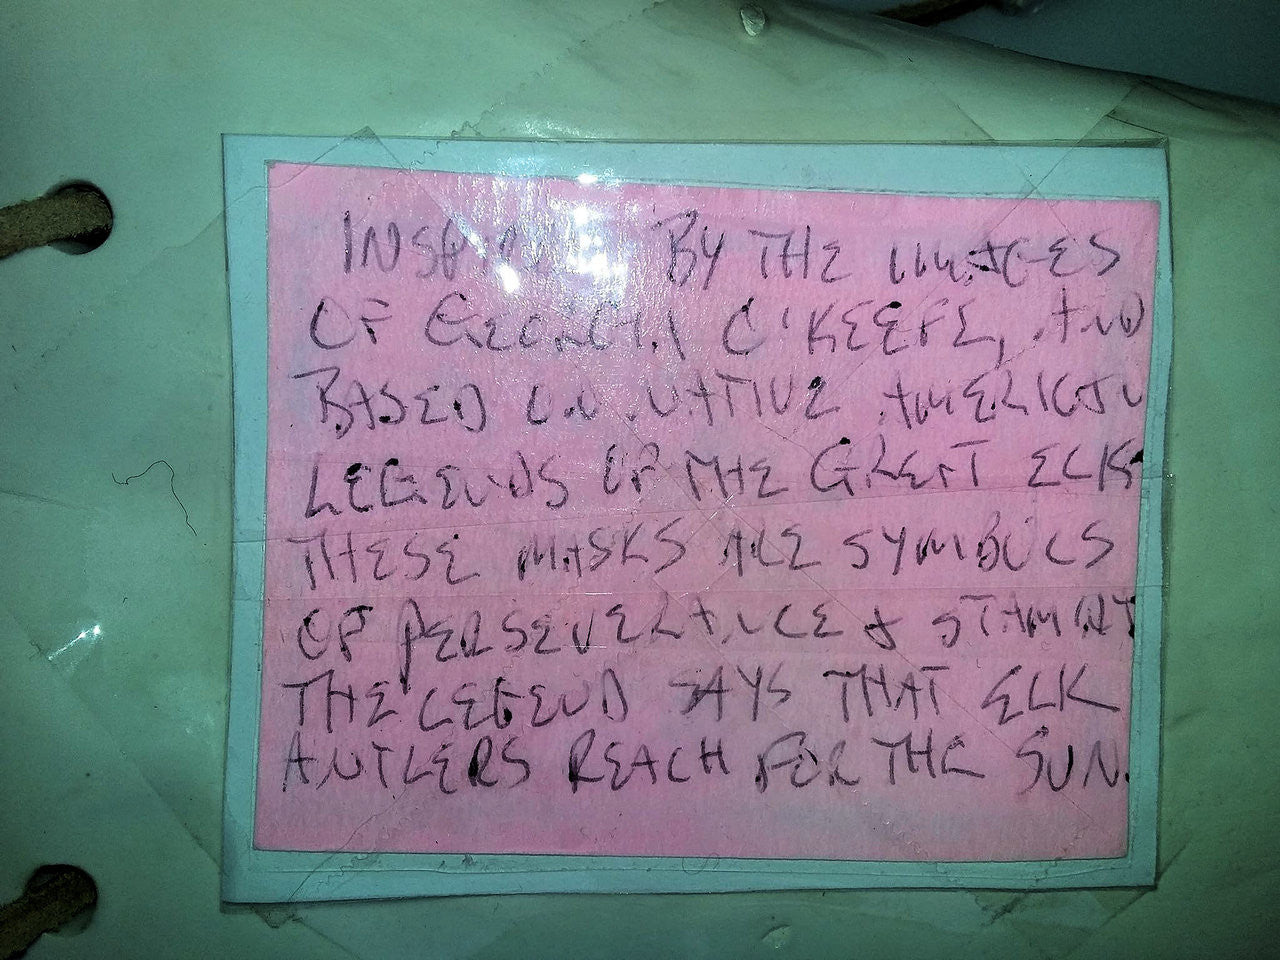 INSPIRED BY THE IMAGES
OF GEORGIA O'KEEFE, AND
BASED ON NATIVE AMERICAN
LEGENDS OF THE GREAT ELK
THESE MASKS ARE SYMBOLS
OF PERSEVERANCE &
THE LEGEND SAYS THAT ELK
ANTLERS REACH FOR THE SUN.